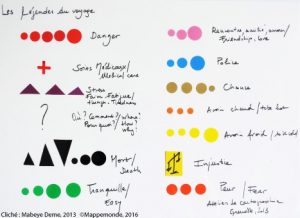 Les Légendes du voyage
Danger
Soins Médicaux /
Medical care
Stress
Faim Fatigue /
Hunger. Tiredness
?
Où? Comment? / Where?
Pourquoi? / How?
Why?
Mort /
Death
Tranquille /
Easy
Rencontre, amitié, amour /
Friendship, love
Police
Chance
Avoir chaud / too hot
Avoir froid / too cold
Injustice
Peur / Fear
Atelier de cartographie
Grenoble, 2013
Cliché : Mabeye Deme, 2013 ©Mappemonde, 2016